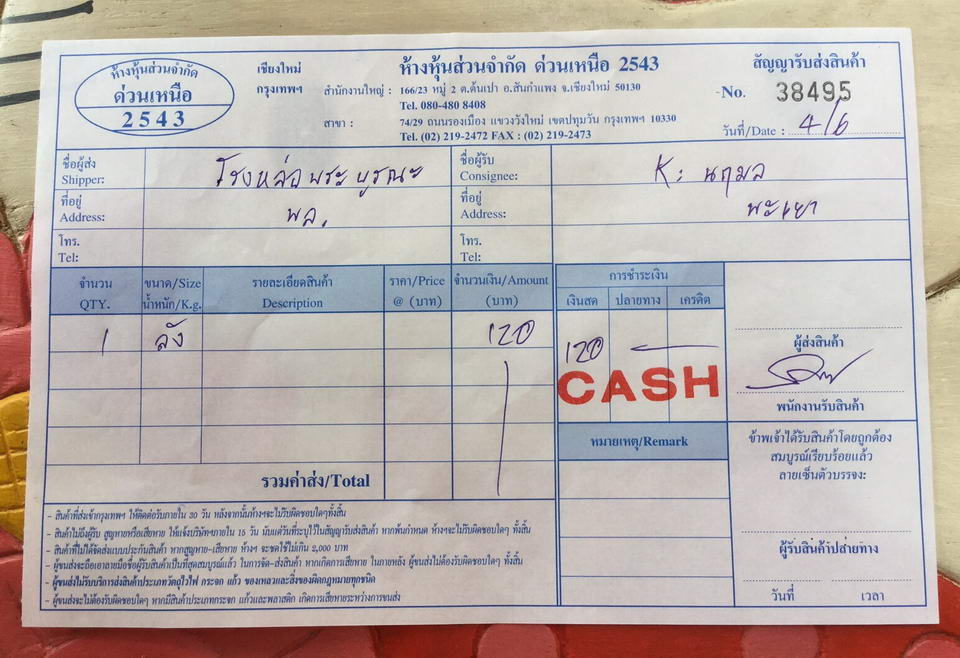 ห้างหุ้นส่วนจำกัด
ด่วนเหนือ
2543
เชียงใหม่
กรุงเทพฯ
ห้างหุ้นส่วนจำกัด ด่วนเหนือ 2543
สำนักงานใหญ่ : 166/23 หมู่ 2 ต.ต้นเปา อ.สันกำแพง จ.เชียงใหม่ 50130
Tel. 080-480 8408
สาขา : 74/29 ถนนรองเมือง แขวงวังใหม่ เขตปทุมวัน กรุงเทพฯ 10330
Tel. (02) 219-2472 FAX : (02) 219-2473
สัญญารับส่งสินค้า
No. 38495
วันที่/Date : 4/6
ชื่อผู้ส่ง
Shipper: โรงหล่อพระบูรณะ
ที่อยู่
Address: พล.
โทร.
Tel:
ชื่อผู้รับ
Consignee: K: นฤมล
ที่อยู่
Address: พะเยา
โทร.
Tel:
จำนวน ขนาด/Size รายละเอียดสินค้า ราคา/Price จำนวนเงิน/Amount
QTY. น้ำหนัก/K.g. Description @ (บาท) (บาท)
1 ลัง 120
รวมค่าส่ง/Total
การชำระเงิน
เงินสด ปลายทาง เครดิต
120
CASH
หมายเหตุ/Remark
ผู้ส่งสินค้า
พนักงานรับสินค้า
ข้าพเจ้าได้รับสินค้าโดยถูกต้อง
สมบูรณ์เรียบร้อยแล้ว
ลายเซ็นตัวบรรจง:
ผู้รับสินค้าปลายทาง
วันที่ เวลา
- สินค้าที่ส่งเข้ากรุงเทพฯ ให้ติดต่อรับภายใน 30 วัน หลังจากนั้นห้างฯจะไม่รับผิดชอบใดๆทั้งสิ้น
- สินค้าไม่ถึงผู้รับ สูญหายหรือเสียหาย ให้แจ้งบริษัทฯภายใน 15 วัน นับแต่วันที่ระบุไว้ในสัญญารับส่งสินค้า หากพ้นกำหนด ห้างฯจะไม่รับผิดชอบใดๆ ทั้งสิ้น
- สินค้าที่ไม่ได้จัดส่งแบบประกันสินค้า หากสูญหาย-เสียหาย ห้างฯ จะชดใช้ไม่เกิน 2,000 บาท
- ผู้ขนส่งจะถือเอาลายมือชื่อผู้รับสินค้าเป็นที่สุดสมบูรณ์แล้ว ในการจัด-ส่งสินค้า หากเกิดการเสียหาย ในภายหลัง ผู้ขนส่งไม่ต้องรับผิดชอบใดๆ ทั้งสิ้น
- ผู้ขนส่งไม่รับบริการส่งสินค้าประเภทวัตถุไวไฟ กระจก แก้ว ของเหลวและสิ่งของผิดกฎหมายทุกชนิด
- ผู้ขนส่งจะไม่ต้องรับผิดชอบใดๆ หากมีสินค้าประเภทกระจก แก้วและพลาสติก เกิดการเสียหายระหว่างการขนส่ง